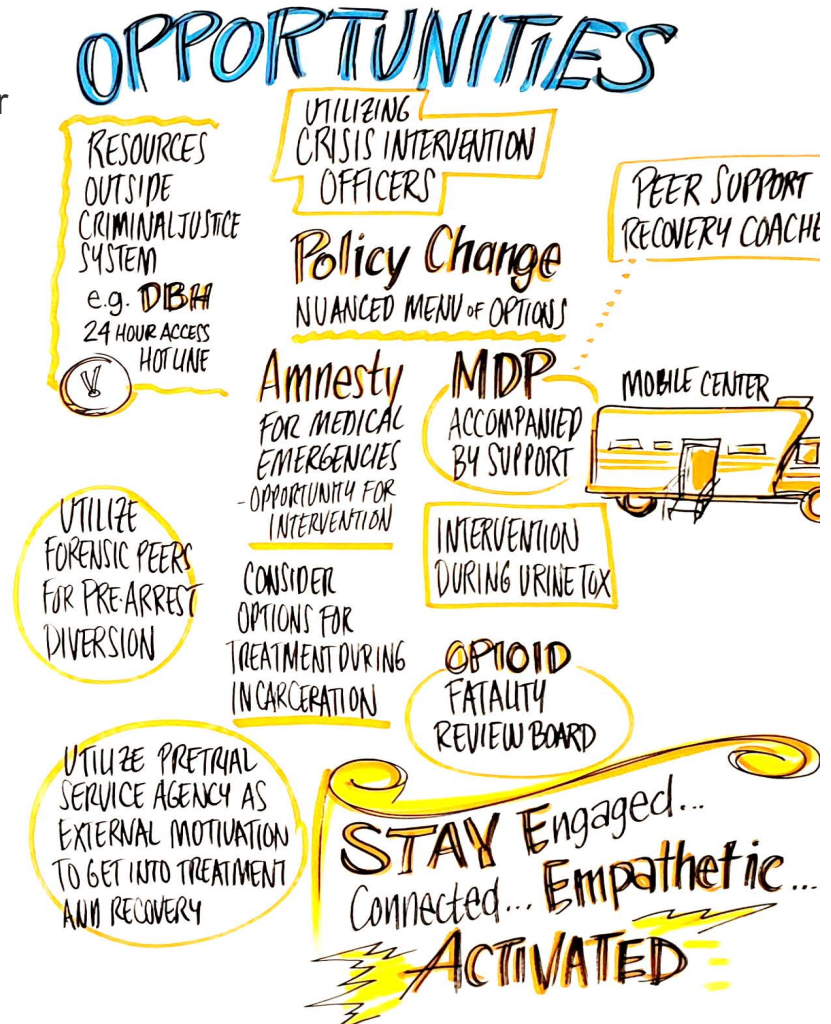 OPPORTUNITIES
r
RESOURCES
OUTSIDE
CRIMINAL JUSTICE
SYSTEM
e.g. DBH
24 HOUR ACCESS
HOTLINE
UTILIZING
CRISIS INTERVENTION
OFFICERS
PEER SUPPORT
RECOVERY COACHE
Policy Change
NUANCED MENU OF OPTIONS
Amnesty
FOR MEDICAL
EMERGENCIES
- OPPORTUNITY FOR
INTERVENTION
MDP
ACCOMPANIED
BY SUPPORT
MOBILE CENTER
UTILIZE
FORENSIC PEERS
FOR PRE-ARREST
DIVERSION
CONSIDER
OPTIONS FOR
TREATMENT DURING
INCARCERATION
INTERVENTION
DURING URINE TOX
OPIOID
FATALITY
REVIEW BOARD
UTILIZE PRETRIAL
SERVICE AGENCY AS
EXTERNAL MOTIVATION
TO GET INTO TREATMENT
AND RECOVERY
STAY Engaged...
Connected... Empathetic...
ACTIVATED